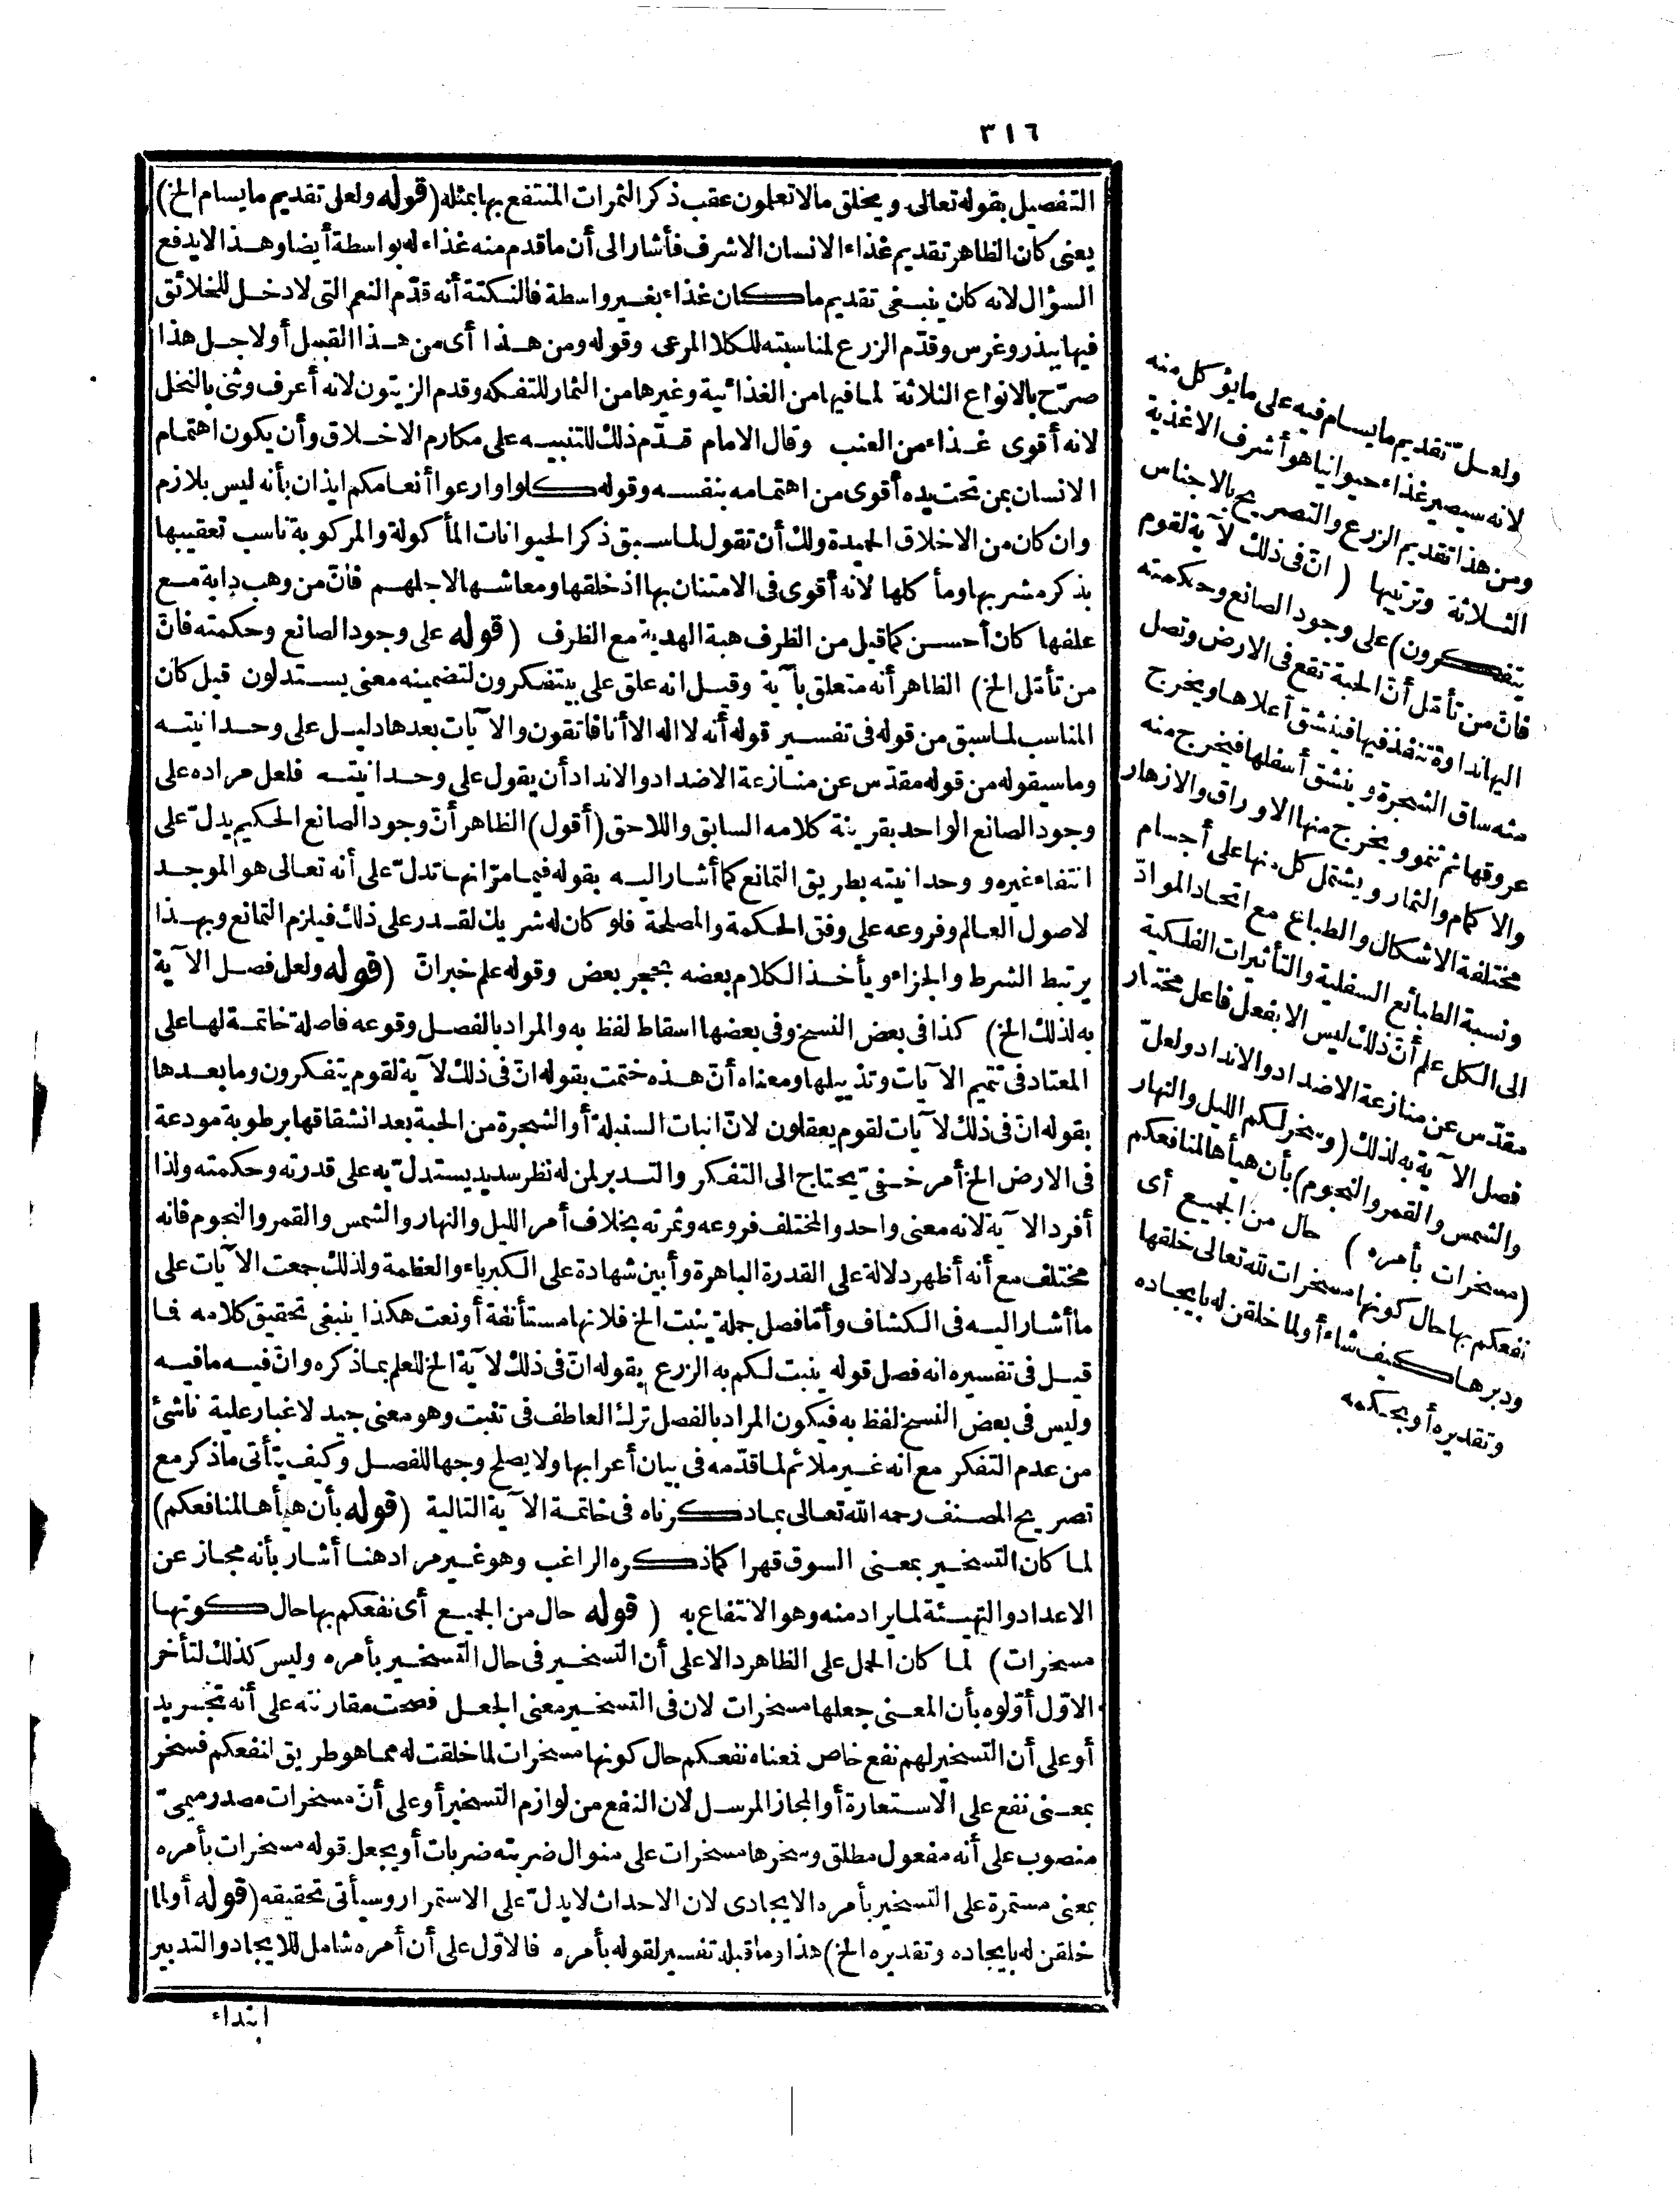 ٣١٦
التفصيل بقوله تعالى ويخلق مالا تعلمون عقب ذكر الثمرات المنتفع بها بمثله (قوله ولعل تقديم ما يسام الخ)
يعنى كان الظاهر تقديم غذاء الانسان الاشرف فأشار الى أن ما قدم منه غذاء له بواسطة أيضا وهذا لا يدفع
السؤال لانه كان ينبغى تقديم ما كان غذاء بغير واسطة فالنكتة أنه قدّم النعم التى لا دخل للخلائق
فيها ببذر وغرس وقدّم الزرع لمناسبته للكلا المرعى وقوله ومن هذا أى من هذا القبيل أو لاجل هذا
صرّح بالانواع الثلاثة لما فيها من الغذائية وغيرها من الثمار للتفكه وقدم الزيتون لانه أعرف وثنى بالنخل
لانه أقوى غذاء من العنب وقال الامام قدّم ذلك للتنبيه على مكارم الاخلاق وأن يكون اهتمام
الانسان بمن تحت يده أقوى من اهتمامه بنفسه وقوله كلوا وارعوا أنعامكم ايذان بأنه ليس بلازم
وان كان من الاخلاق الحميدة ولك أن تقول لما سبق ذكر الحيوانات المأكولة والمركوبة ناسب تعقيبها
بذكر مشربها ومأكلها لانه أقوى فى الامتنان بها اذ خلقها ومعاشها لاجلهم فانّ من وهب دابة مع
علفها كان أحسن كما قيل من الظرف هبة الهدية مع الظرف (قوله على وجود الصانع وحكمته فانّ
من تأمّل الخ) الظاهر أنه متعلق بآية وقيل انه علق على بيتفكرون لتضمينه معنى يستدلون قيل كان
المناسب لما سبق من قوله فى تفسير قوله أنه لا اله الا أنا فاتقون والآيات بعدها دليل على وحدانيته
وما سيقوله من قوله مقدّس عن منازعة الاضداد والانداد أن يقول على وحدانيته فلعل مراده على
وجود الصانع الواحد بقرينة كلامه السابق واللاحق (أقول) الظاهر أنّ وجود الصانع الحكيم يدلّ على
انتفاء غيره ووحدانيته بطريق التمانع كما أشار اليه بقوله فيما مرّ انها تدلّ على أنه تعالى هو الموجد
لاصول العالم وفروعه على وفق الحكمة والمصلحة فلو كان له شريك لقدر على ذلك فيلزم التمانع وبهذا
يرتبط الشرط والجزاء ويأخذ الكلام بعضه بحجز بعض وقوله علم خبر انّ (قوله ولعل فصل الآية
به لذلك الخ) كذا فى بعض النسخ وفى بعضها اسقاط لفظ به والمراد بالفصل وقوعه فاصلة خاتمة لها على
المعتاد فى تتميم الآيات وتذييلها ومعناه أنّ هذه ختمت بقوله انّ فى ذلك لآية لقوم يتفكرون وما بعدها
بقوله انّ فى ذلك لآيات لقوم يعقلون لانّ انبات السنبلة أو الشجرة من الحبة بعد انشقاقها برطوبة مودعة
فى الارض الخ أمر خفىّ يحتاج الى التفكر والتدبر لمن له نظر سديد يستدلّ به على قدرته وحكمته ولذا
أفرد الآية لانه معنى واحد والمختلف فروعه وثمرته بخلاف أمر الليل والنهار والشمس والقمر والنجوم فانه
مختلف مع أنه أظهر دلالة على القدرة الباهرة وأبين شهادة على الكبرياء والعظمة ولذلك جمعت الآيات على
ما أشار اليه فى الكشاف وأمّا فصل جملة ينبت الخ فلانها مستأنفة أو نعت هكذا ينبغى تحقيق كلامه فما
قيل فى تفسيره انه فصل قوله ينبت لكم به الزرع بقوله انّ فى ذلك لآية الخ للعلم بما ذكره وانّ فيه ما فيه
وليس فى بعض النسخ لفظ به فيكون المراد بالفصل ترك العاطف فى تنبت وهو معنى جيد لا غبار علية ناشئ
من عدم التفكر مع انه غير ملائم لما قدّمه فى بيان أعرابها ولا يصلح وجها للفصل وكيف يتأتى ما ذكر مع
تصريح المصنف رحمه الله تعالى بما ذكرناه فى خاتمة الآية التالية (قوله بأن هيأها لمنافعكم)
لما كان التسخير بمعنى السوق قهرا كما ذكره الراغب وهو غير مراد هنا أشار بأنه مجاز عن
الاعداد والتهيئة لما يراد منه وهو الانتفاع به (قوله حال من الجميع أى نفعكم بها حال كونها
مسخرات) لما كان الحمل على الظاهر دالا على أن التسخير فى حال التسخير بأمره وليس كذلك لتأخر
الاوّل أوّلوه بأن المعنى جعلها مسخرات لان فى التسخير معنى الجعل فصحت مقارنته على أنه تجريد
أو على أن التسخير لهم نفع خاص فمعناه نفعكم حال كونها مسخرات لما خلقت له مما هو طريق لنفعكم فسخر
بمعنى نفع على الاستعارة أو المجاز المرسل لان النفع من لوازم التسخير أو على أنّ مسخرات مصدر ميمىّ
منصوب على أنه مفعول مطلق وسخرها مسخرات على منوال ضربته ضربات أو يجعل قوله مسخرات بأمره
بمعنى مستمرة على التسخير بأمره الايجادى لان الاحداث لا يدلّ على الاستمرار وسيأتى تحقيقه (قوله أو لما
خلقن له بايجاده وتقديره الخ) هذا وما قبله تفسير لقوله بأمره فالاوّل على أن أمره شامل للايجاد والتدبير
ابتداء
ولعلّ تقديم ما يسام فيه على ما يؤكل منه
لانه سيصير غذاء حيوانيا هو أشرف الاغذية
ومن هذا تقديم الزرع والتصريح بالاجناس
الثلاثة وترتيبها (انّ فى ذلك لآية لقوم
يتفكرون) على وجود الصانع وحكمته
فانّ من تأمّل أنّ الحبة تقع فى الارض وتصل
اليها نداوة تنفذ فيها فينشق أعلاها ويخرج
منه ساق الشجرة وينشق أسفلها فيخرج منه
عروقها ثم تنمو ويخرج منها الاوراق والازهار
والاكمام والثمار ويشتمل كل منها على أجسام
مختلفة الاشكال والطباع مع اتحاد الموادّ
ونسبة الطبائع السفلية والتأثيرات الفلكية
الى الكل علم أنّ ذلك ليس الا بفعل فاعل مختار
مقدّس عن منازعة الاضداد والانداد ولعلّ
فصل الآية به لذلك (وسخر لكم الليل والنهار
والشمس والقمر والنجوم) بأن هيأها لمنافعكم
(مسخرات بأمره) حال من الجميع أى
نفعكم بها حال كونها مسخرات لله تعالى خلقها
ودبرها كيف شاء أو لما خلقن له بايجاده
وتقديره أو بحكمه